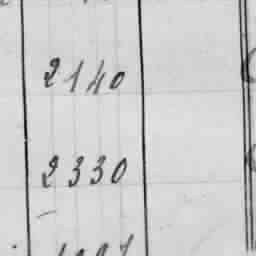 2140
2330